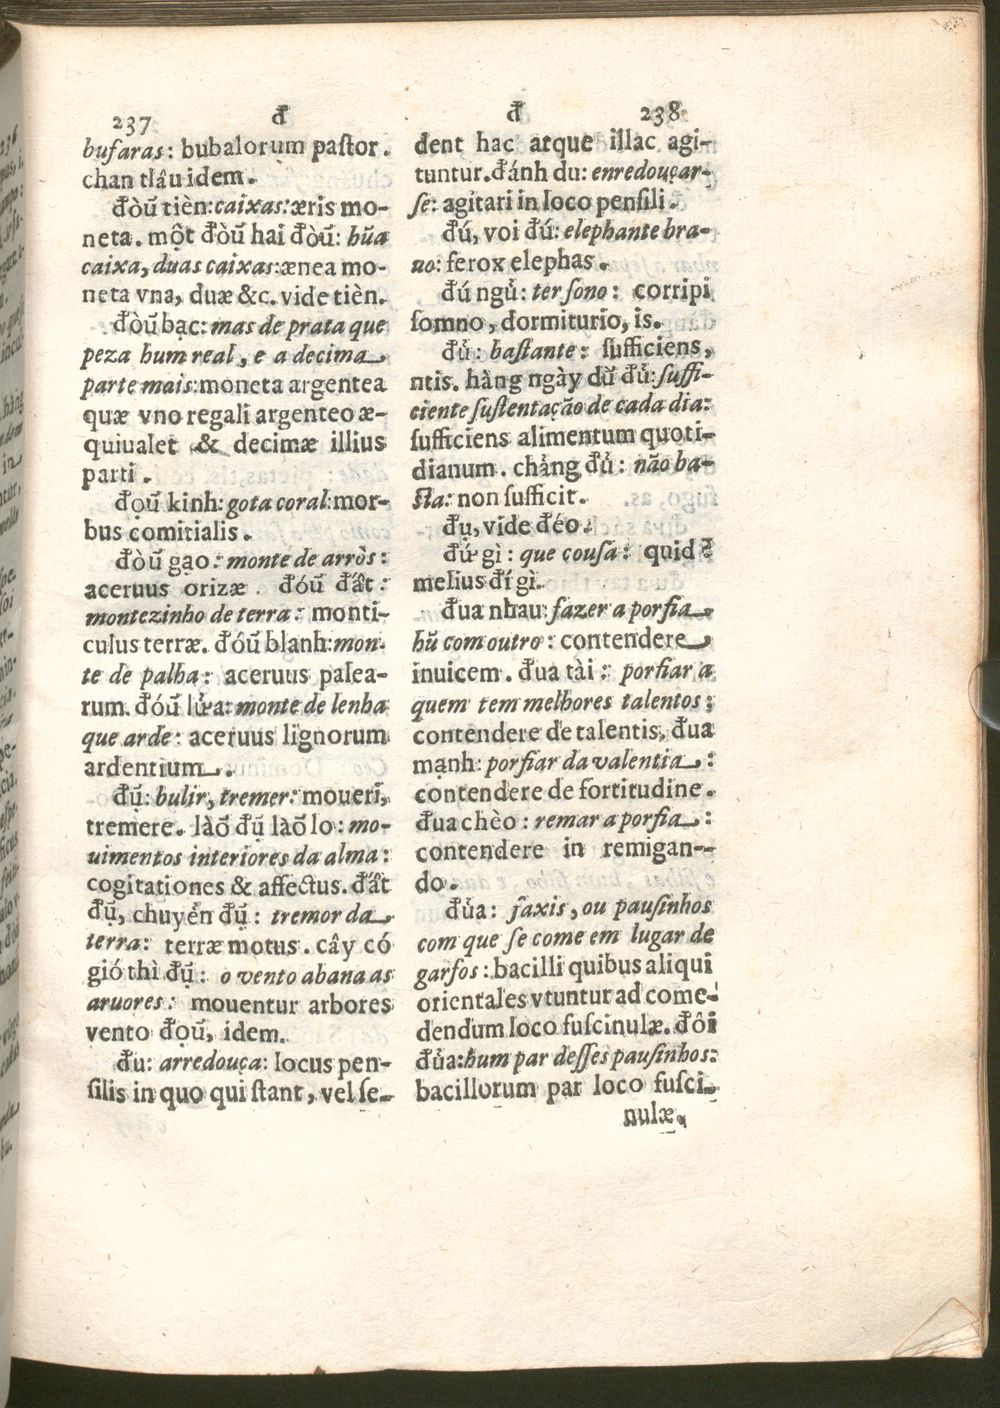 237 đ
bufaras: bubalorum paſtor.
chan tlâu idem.
đòũ tièn: caixas: æris mo-
neta. một đòũ hai đòũ: hũa
caixa, duas caixas: ænea mo-
neta vna, duæ &c. vide tièn.
đòũ bạc: mas de prata que
peza hum real, e a decima
parte mais: moneta argentea
quæ vno regali argenteo æ-
quiualet & decimæ illius
parti.
đọũ kinh: gota coral: mor-
bus comitialis.
đòũ gạo: monte de arròs:
aceruus orizæ. đóũ đất:
montezinho de terra: monti-
culus terræ. đóũ blanh: mon-
te de palha: aceruus palea-
rum. đóũ lửa: monte de lenha
que arde: aceruus lignorum
ardentium.
đụ̃: bulir, tremer: moueri,
tremere. làõ đụ̃ làõ lo: mo-
uimentos interiores da alma:
cogitationes & affectus. đất
đụ̃, chuyển đụ̃: tremor da
terra: terræ motus. cây có
gió thì đụ̃: o vento abana as
aruores: mouentur arbores
vento đọũ, idem.
đu: arredouça: locus pen-
ſilis in quo qui ſtant, vel ſe-
đ 238
dent hac atque illac agi-
tuntur. đánh du: enredouçar-
ſe: agitari in loco penſili.
đú, voi đú: elephante bra-
uo: ferox elephas.
đú ngủ: ter ſono: corripi
ſomno, dormiturio, is.
đủ: baſtante: ſufficiens,
ntis. hàng ngày dũ đủ: ſuffi-
ciente ſuſtentação de cada dia:
ſufficiens alimentum quoti-
dianum. chẳng đủ: não ba-
ſta: non ſufficit.
đụ, vide đéo.
đứ gì: que couſa: quid
melius đí gì.
đua nhau: fazer a porfia
hũ com outro: contendere
inuicem. đua tài: porfiar a
quem tem melhores talentos:
contendere de talentis, đua
mạnh: porfiar da valentia:
contendere de fortitudine.
đua chèo: remar a porfia:
contendere in remigan-
do.
đủa: faxis, ou pauſinhos
com que ſe come em lugar de
garfos: bacilli quibus aliqui
orientales vtuntur ad come-
dendum loco fuſcinulæ. đôi
đủa: hum par deſſes pauſinhos:
bacillorum par loco fuſci-
nulæ.